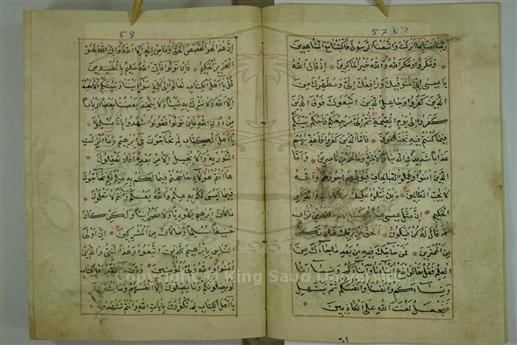 57
ربنا امنا بما انزلت واتبعنا الرسول فاكتبنا مع الشاهدين
ومكروا ومكر الله والله خير الماكرين اذ قال الله
يا عيسى اني متوفيك ورافعك الي ومطهرك من
الذين كفروا وجاعل الذين اتبعوك فوق الذين
كفروا الى يوم القيمة ثم الي مرجعكم فاحكم بينكم
فيما كنتم فيه تختلفون فاما الذين كفروا فاعذبهم
عذابا شديدا في الدنيا والاخرة وما لهم من ناصرين واما
الذين امنوا وعملوا الصالحات فيوفيهم اجورهم والله
لا يحب الظالمين ذلك نتلوه عليك من الايات والذكر
الحكيم ان مثل عيسى عند الله كمثل ادم خلقه من تراب
ثم قال له كن فيكون الحق من ربك فلا تكن
من الممترين فمن حاجك فيه من بعد ما جاءك من
العلم فقل تعالوا ندع ابناءنا وابناءكم ونساءنا
ونساءكم وانفسنا وانفسكم ثم نبتهل
فنجعل لعنت الله على الكاذبين
58
ان هذا لهو القصص الحق وما من اله الا الله وان الله لهو
العزيز الحكيم فان تولوا فان الله عليم بالمفسدين
قل يا اهل الكتاب تعالوا الى كلمة سواء بيننا وبينكم الا نعبد
الا الله ولا نشرك به شيئا ولا يتخذ بعضنا بعضا اربابا
من دون الله فان تولوا فقولوا اشهدوا بانا مسلمون
يا اهل الكتاب لم تحاجون في ابرهيم وما انزلت
التورية والانجيل الا من بعده افلا تعقلون
ها انتم هؤلاء حاججتم فيما لكم به علم فلم تحاجون
فيما ليس لكم به علم والله يعلم وانتم لا تعلمون
ما كان ابرهيم يهوديا ولا نصرانيا ولكن كان
حنيفا مسلما وما كان من المشركين ان اولى
الناس بابرهيم للذين اتبعوه وهذا النبي والذين
امنوا والله ولي المؤمنين ودت طائفة من اهل الكتاب
لو يضلونكم وما يضلون الا انفسهم وما يشعرون
يا اهل الكتاب لم تكفرون بايات الله وانتم تشهدون
Copyright © King Saud University